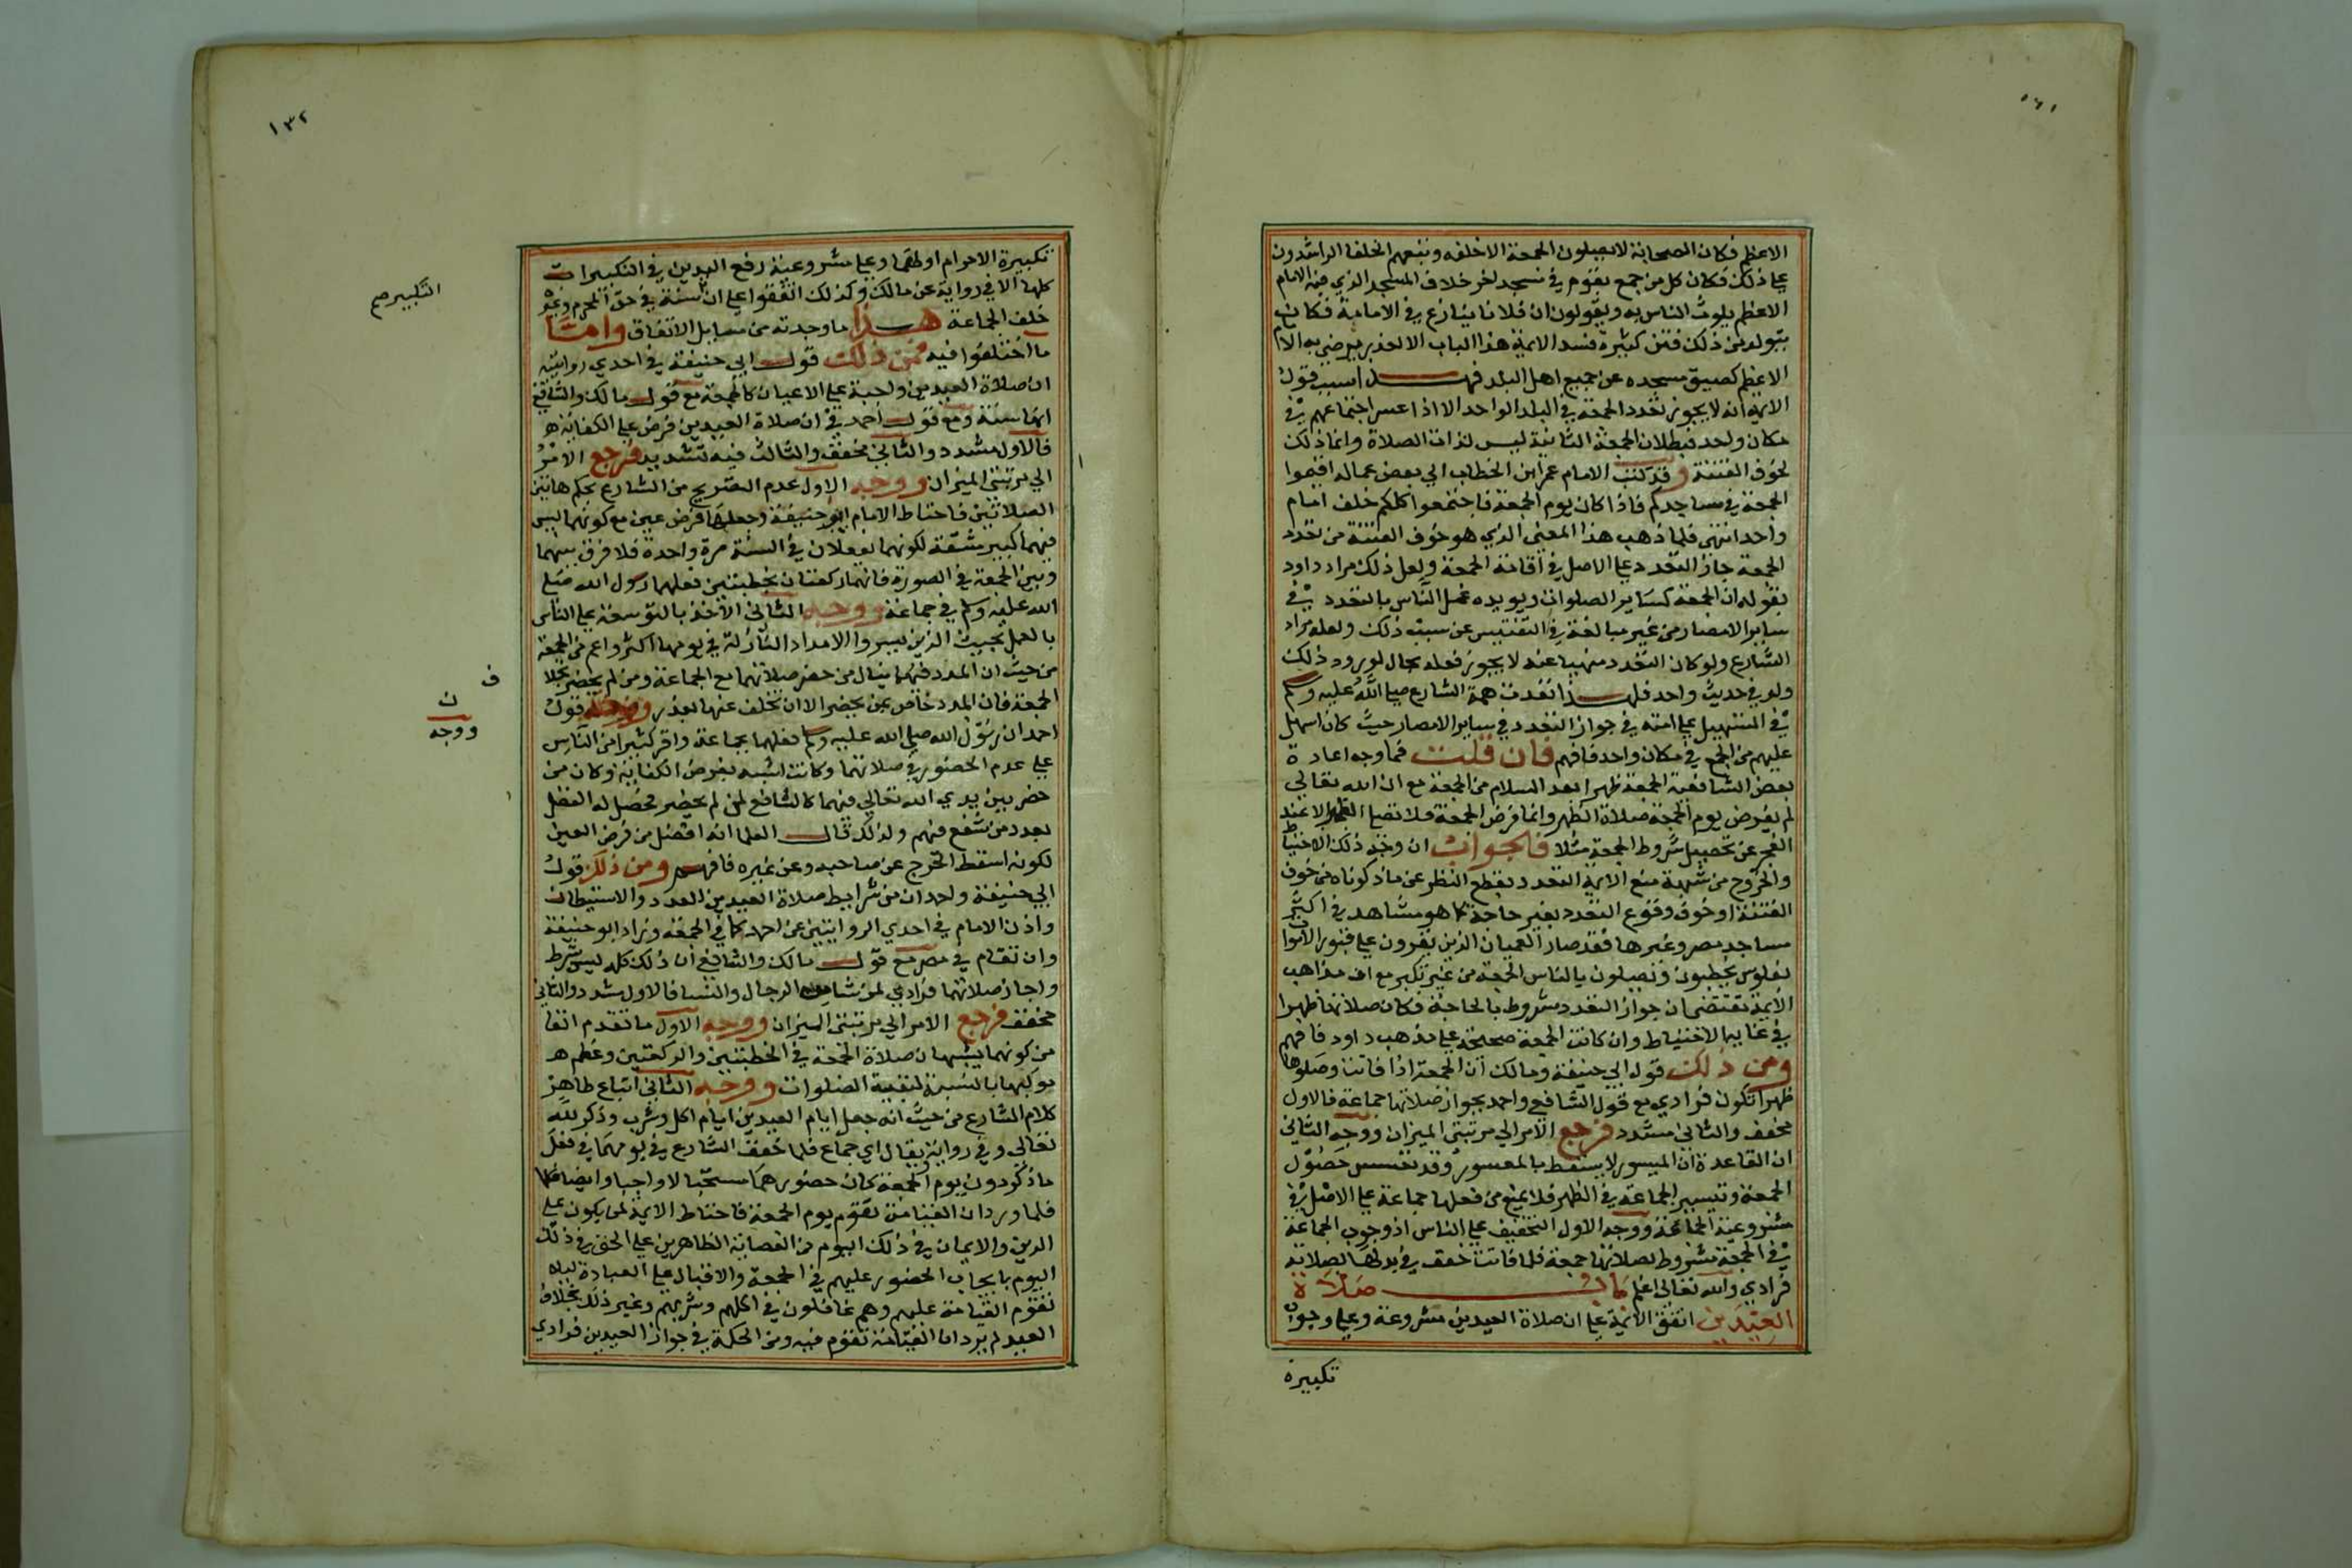 الاعظم فكان الصحابة لا يصلون الجمعة الا خلفه وتبعهم الخلفا الراشدون
على ذلك فكان كل من جمع بقوم في مسجد اخر خلاف المسجد الذي فيه الامام
الاعظم يلوث الناس به ويقولون ان فلانا ينازع في الامامة فكان
يتولد من ذلك فتن كثيرة فسد الايمة هذا الباب الا لعذر يرضى به الامام
الاعظم كضيق مسجده عن جميع اهل البلد فهذا سبب قول
الايمة انه لا يجوز تعدد الجمعة في البلد الواحد الا اذا عسر اجتماعهم في
مكان واحد فبطلان الجمعة الثانية ليس لذات الصلاة وانما ذلك
لخوف الفتنة وقد كتب الامام عمر ابن الخطاب الى بعض عماله اقيموا
الجمعة في مساجدكم فاذا كان يوم الجمعة فاجتمعوا كلكم خلف امام
واحد انتهى فلما ذهب هذا المعنى الذي هو خوف الفتنة من تعدد
الجمعة جاز التعدد على الاصل في اقامة الجمعة ولعل ذلك مراد داود
بقوله ان الجمعة كساير الصلوات ويويده عمل الناس بالتعدد في
ساير الامصار من غير مبالغة في التفتيش عن سبب ذلك ولعله مراد
الشارع ولو كان التعدد منهيا عنه لا يجوز فعله بحال لورد ذلك
ولو في حديث واحد فلهذا نفذت همة الشارع صلى الله عليه وسلم
في التسهيل على امته في جواز التعدد في ساير الامصار حيث كان اسهل
عليهم من الجمع في مكان واحد فافهم فان قلت فما وجه اعادة
بعض الشافعية الجمعة ظهرا بعد السلام من الجمعة مع ان الله تعالى
لم يفرض يوم الجمعة صلاة الظهر وانما فرض الجمعة فلا تصلى الظهر الا عند
العجز عن تحصيل شروط الجمعة مثلا فالجواب ان وجه ذلك الاحتياط
والخروج من شبهة منع الايمة التعدد بقطع النظر عن ما ذكرناه من خوف
الفتنة او خوف وقوع التعدد بغير حاجة كما هو مشاهد في اكثر
مساجد مصر وغيرها فقد صار العميان الذين يقرون على قبور الاموات
بفلوس يخطبون ويصلون بالناس الجمعة من غير نكير مع ان مذاهب
الايمة تقتضى ان جواز التعدد مشروط بالحاجة فكان صلاتها ظهرا
في غاية الاحتياط وان كانت الجمعة صحيحة على مذهب داود فافهم
ومن ذلك قول ابي حنيفة ومالك ان الجمعة اذا فاتت وصلوها
ظهرا تكون فرادى مع قول الشافعي واحمد بجواز صلاتها جماعة فالاول
مخفف والثاني مشدد فرجع الامر الى مرتبتي الميزان ووجه الثاني
ان القاعدة ان الميسور لا يسقط بالمعسور وقد تعسر حصول
الجمعة وتيسر الجماعة في الظهر فلا يمنع من فعلها جماعة على الاصل في
مشروعية الجماعة ووجه الاول التخفيف على الناس اذ وجوب الجماعة
في الجمعة مشروط بصلاتها جمعة فلما فاتت خفف في بدلها بصلاته
فرادى والله تعالى اعلم باب صلاة
العيدين اتفق الائمة على ان صلاة العيدين مشروعة وعلى وجوب
تكبيرة
١٣٢
تكبيرة الاحرام اولهما وعلى مشروعية رفع اليدين في التكبيرات
كلها الا في رواية عن مالك وكذلك اتفقوا على ان سنة في حق المحرم وغيره
التكبير صح
خلف الجماعة هذا ما وجدته من مسايل الاتفاق واما
ما اختلفوا فيه فمن ذلك قول ابي حنيفة في احدى روايتيه
ان صلاة العيدين واجبة على الاعيان كالجمعة مع قول مالك والشافعي
انها سنة ومع قول احمد في ان صلاة العيدين فرض على الكفاية
فالاول مشدد والثاني مخفف والثالث فيه تشديد فرجع الامر
الى مرتبتي الميزان ووجه الاول عدم التصريح من الشارع بحكم هاتين
الصلاتين فاحتاط الامام ابو حنيفة وجعلها فرض عين مع كونهما ليس
فيهما كبير مشقة لكونهما يفعلان في السنة مرة واحدة فلا فرق بينهما
وبين الجمعة في الصورة فانهما ركعتان بخطبتين فعلهما رسول الله صلى
الله عليه وسلم في جماعة ووجه الثاني الاخذ بالتوسعة على الناس
بالعمل بحديث الدين يسر والامداد النازلة في يومهما اكثر واعم من الجمعة
من حيث ان المدد فيهما ينال من حضر صلاتهما مع الجماعة ومن لم يحضر بخلاف
الجمعة فان المدد خاص بمن يحضر الا ان تخلف عنها بعذر ووجه قول
ووجه
احمد ان رسول الله صلى الله عليه وسلم فعلهما بجماعة واقر كثيرا من الناس
على عدم الحضور في صلاتهما وكانت اشبه بفرض الكفاية وكان من
حضر بين يدي الله تعالى فيهما كالشافع لمن لم يحضر فحصل له الفضل
بعدد من شفع فيهم ولذلك قال العلما انه افضل من فرض العين
لكونه اسقط الحرج عن صاحبه وعن غيره فافهم ومن ذلك قول
ابي حنيفة واحمد ان من شرايط صلاة العيدين العدد والاستيطان
واذن الامام في احدى الروايتين عن احمد كما في الجمعة وزاد ابو حنيفة
وان تقام في مصر مع قول مالك والشافعي ان ذلك كله ليس شرط
واجاز صلاتهما فرادى لمن شا من الرجال والنسا فالاول مشدد والثاني
مخفف فرجع الامر الى مرتبتي الميزان ووجه الاول ما تقدم انفا
من كونهما يشبهان صلاة الجمعة في الخطبتين والركعتين وعظم
موكبهما بالنسبة لبقية الصلوات ووجه الثاني اتباع ظاهر
كلام الشارع من حيث انه جعل ايام العيدين ايام اكل وشرب وذكر لله
تعالى وفي رواية بعال اي جماع فلما خفف الشارع في يومهما في فعل
ما ذكر دون يوم الجمعة كان حضورهما مستحبا لا واجبا وايضا
فلما ورد ان القيامة تقوم يوم الجمعة فاحتاط الايمة لمن يكون على
الدين والايمان في ذلك اليوم من العصابة الظاهرين على الحق في ذلك
اليوم بايجاب الحضور عليهم في الجمعة والاقبال على العبادة ليلا
تقوم القيامة عليهم وهم غافلون في اكلهم وشربهم وغير ذلك بخلاف
العيد لم يرد ان القيامة تقوم فيه ومن الحكمة في جواز العيدين فرادى